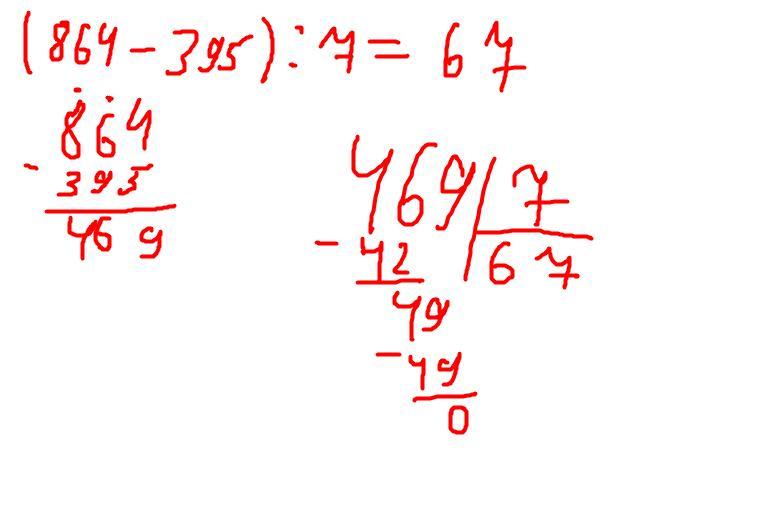 (864 - 395) : 7 = 67
- 864
395
469
469 | 7
- 42 | 67
49
- 49
0